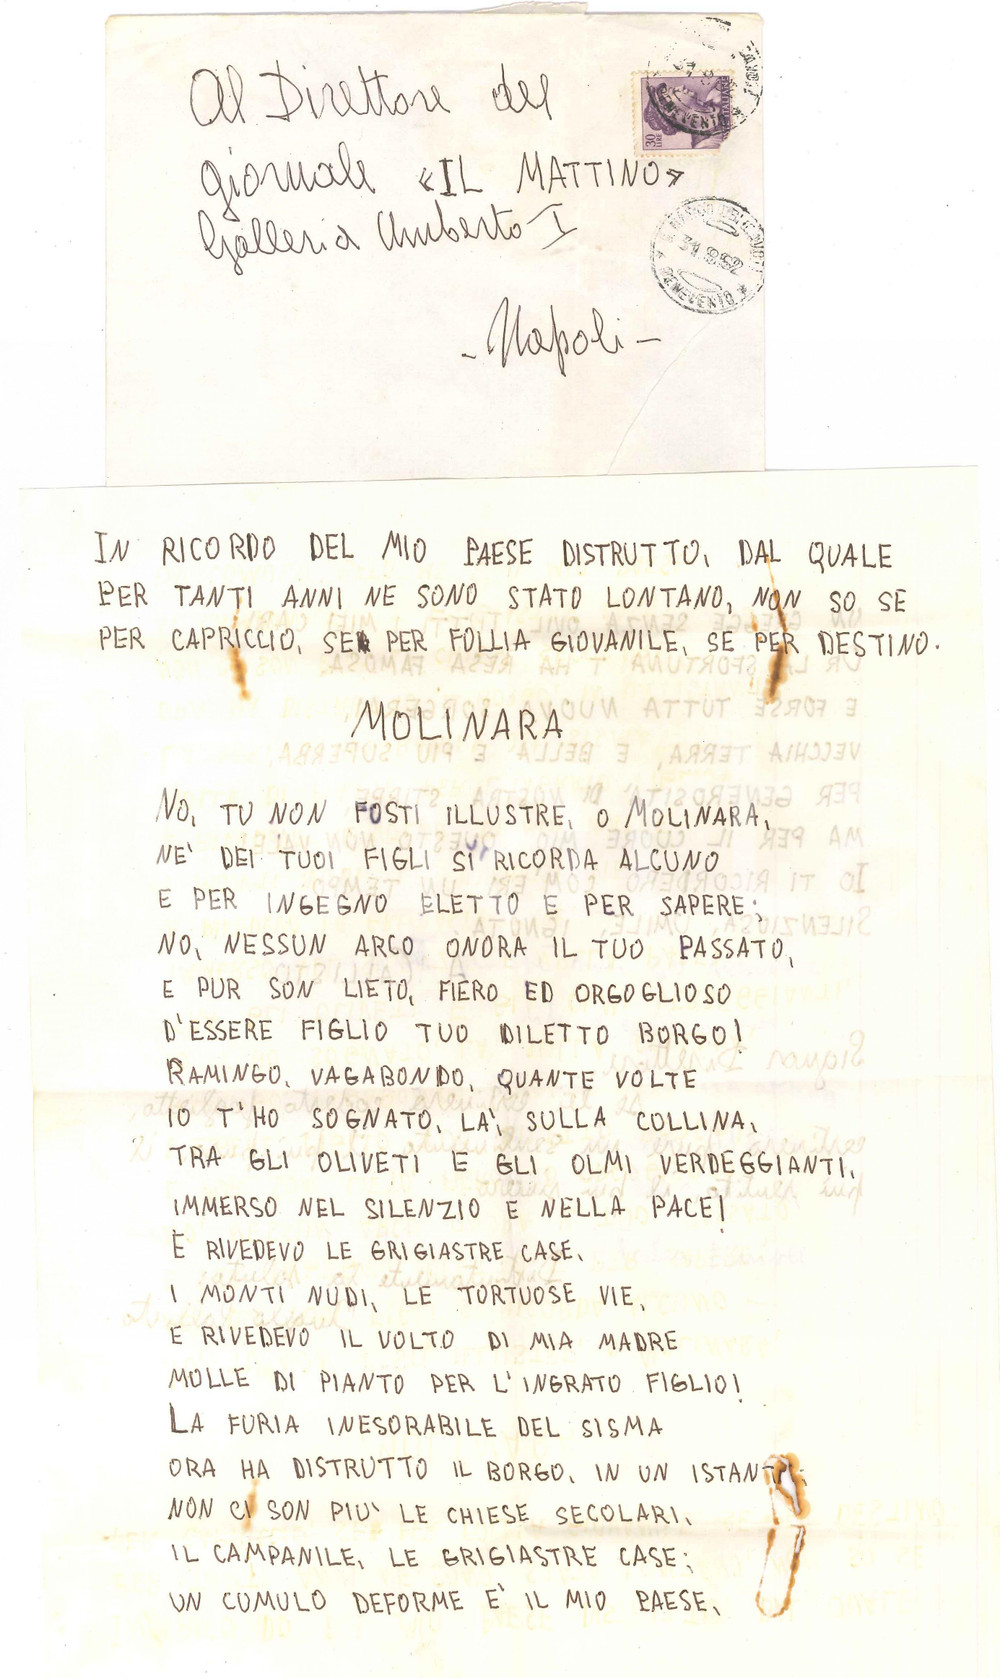 Al Direttore del
giornale «IL MATTINO»
Galleria Umberto I
- Napoli -
30
LIRE
BENEVENTO
BENEVENTO
IN RICORDO DEL MIO PAESE DISTRUTTO, DAL QUALE
PER TANTI ANNI NE SONO STATO LONTANO, NON SO SE
PER CAPRICCIO, SE PER FOLLIA GIOVANILE, SE PER DESTINO.
MOLINARA
NO, TU NON FOSTI ILLUSTRE, O MOLINARA,
NE' DEI TUOI FIGLI SI RICORDA ALCUNO
E PER INGEGNO ELETTO E PER SAPERE;
NO, NESSUN ARCO ONORA IL TUO PASSATO,
E PUR SON LIETO, FIERO ED ORGOGLIOSO
D'ESSERE FIGLIO TUO DILETTO BORGO!
RAMINGO, VAGABONDO, QUANTE VOLTE
IO T'HO SOGNATO, LA', SULLA COLLINA,
TRA GLI OLIVETI E GLI OLMI VERDEGGIANTI,
IMMERSO NEL SILENZIO E NELLA PACE!
E RIVEDEVO LE GRIGIASTRE CASE,
I MONTI NUDI, LE TORTUOSE VIE,
E RIVEDEVO IL VOLTO DI MIA MADRE
MOLLE DI PIANTO PER L'INGRATO FIGLIO!
LA FURIA INESORABILE DEL SISMA
ORA HA DISTRUTTO IL BORGO, IN UN ISTANTE:
NON CI SON PIU' LE CHIESE SECOLARI,
IL CAMPANILE, LE GRIGIASTRE CASE;
UN CUMULO DEFORME E' IL MIO PAESE,